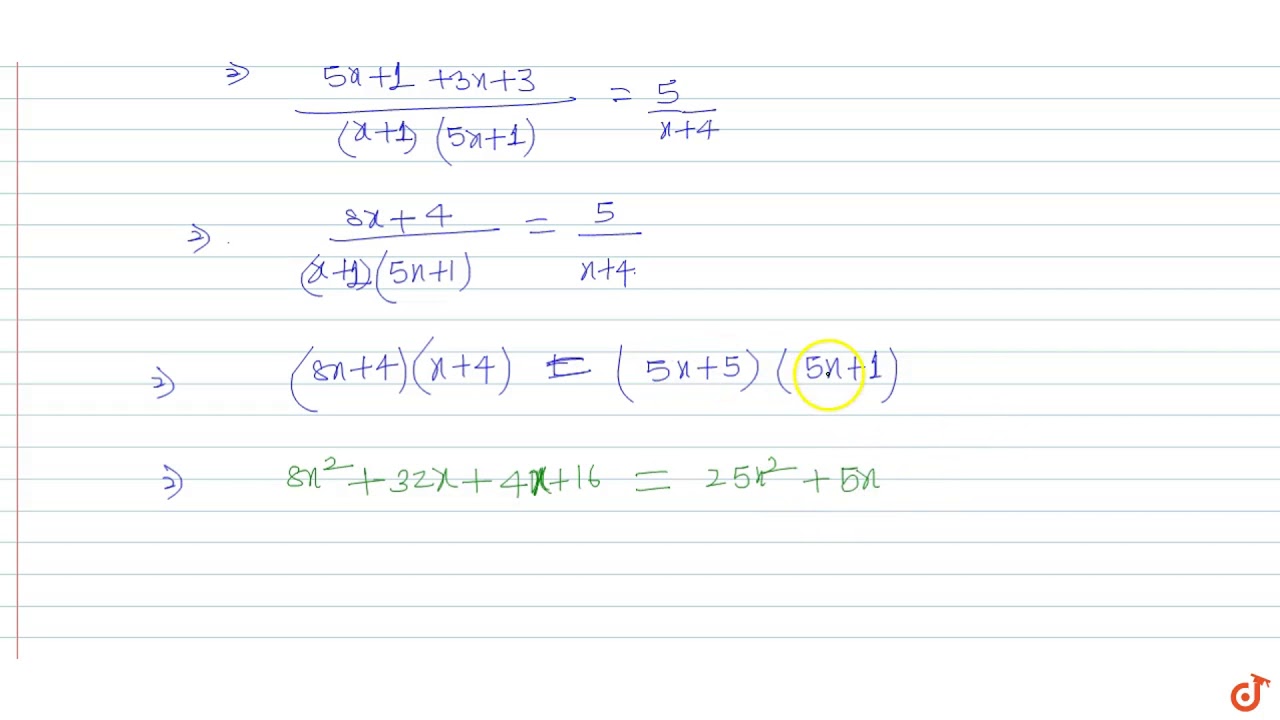 ⇒ (5x+1 +3x+3)/((x+1) (5x+1)) = 5/(x+4)
⇒. (8x+4)/((x+1)(5x+1)) = 5/(x+4.)
⇒ (8x+4)(x+4) = (5x+5) (5x+1)
⇒ 8x²+32x+4x+16 = 25x²+5x